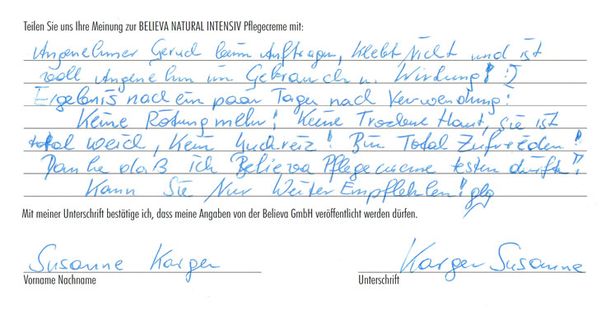 Teilen Sie uns Ihre Meinung zur BELIEVA NATURAL INTENSIV Pflegecreme mit:
Angenehmer Geruch beim Auftragen, klebt Nicht und ist
voll Angenehm im Gebrauch u. Wirkung! :)
Ergebnis nach ein paar Tagen nach Verwendung:
Keine Rötung mehr! Keine Trockene Haut, sie ist
total weich, Kein Juckreiz! Bin Total Zufrieden!
Danke daß ich Believa Pflegecreme testen durfte!!
Kann Sie Nur Weiter Empfehlen! glg
Mit meiner Unterschrift bestätige ich, dass meine Angaben von der Believa GmbH veröffentlicht werden dürfen.
Susanne Karger Karger Susanne
Vorname Nachname Unterschrift